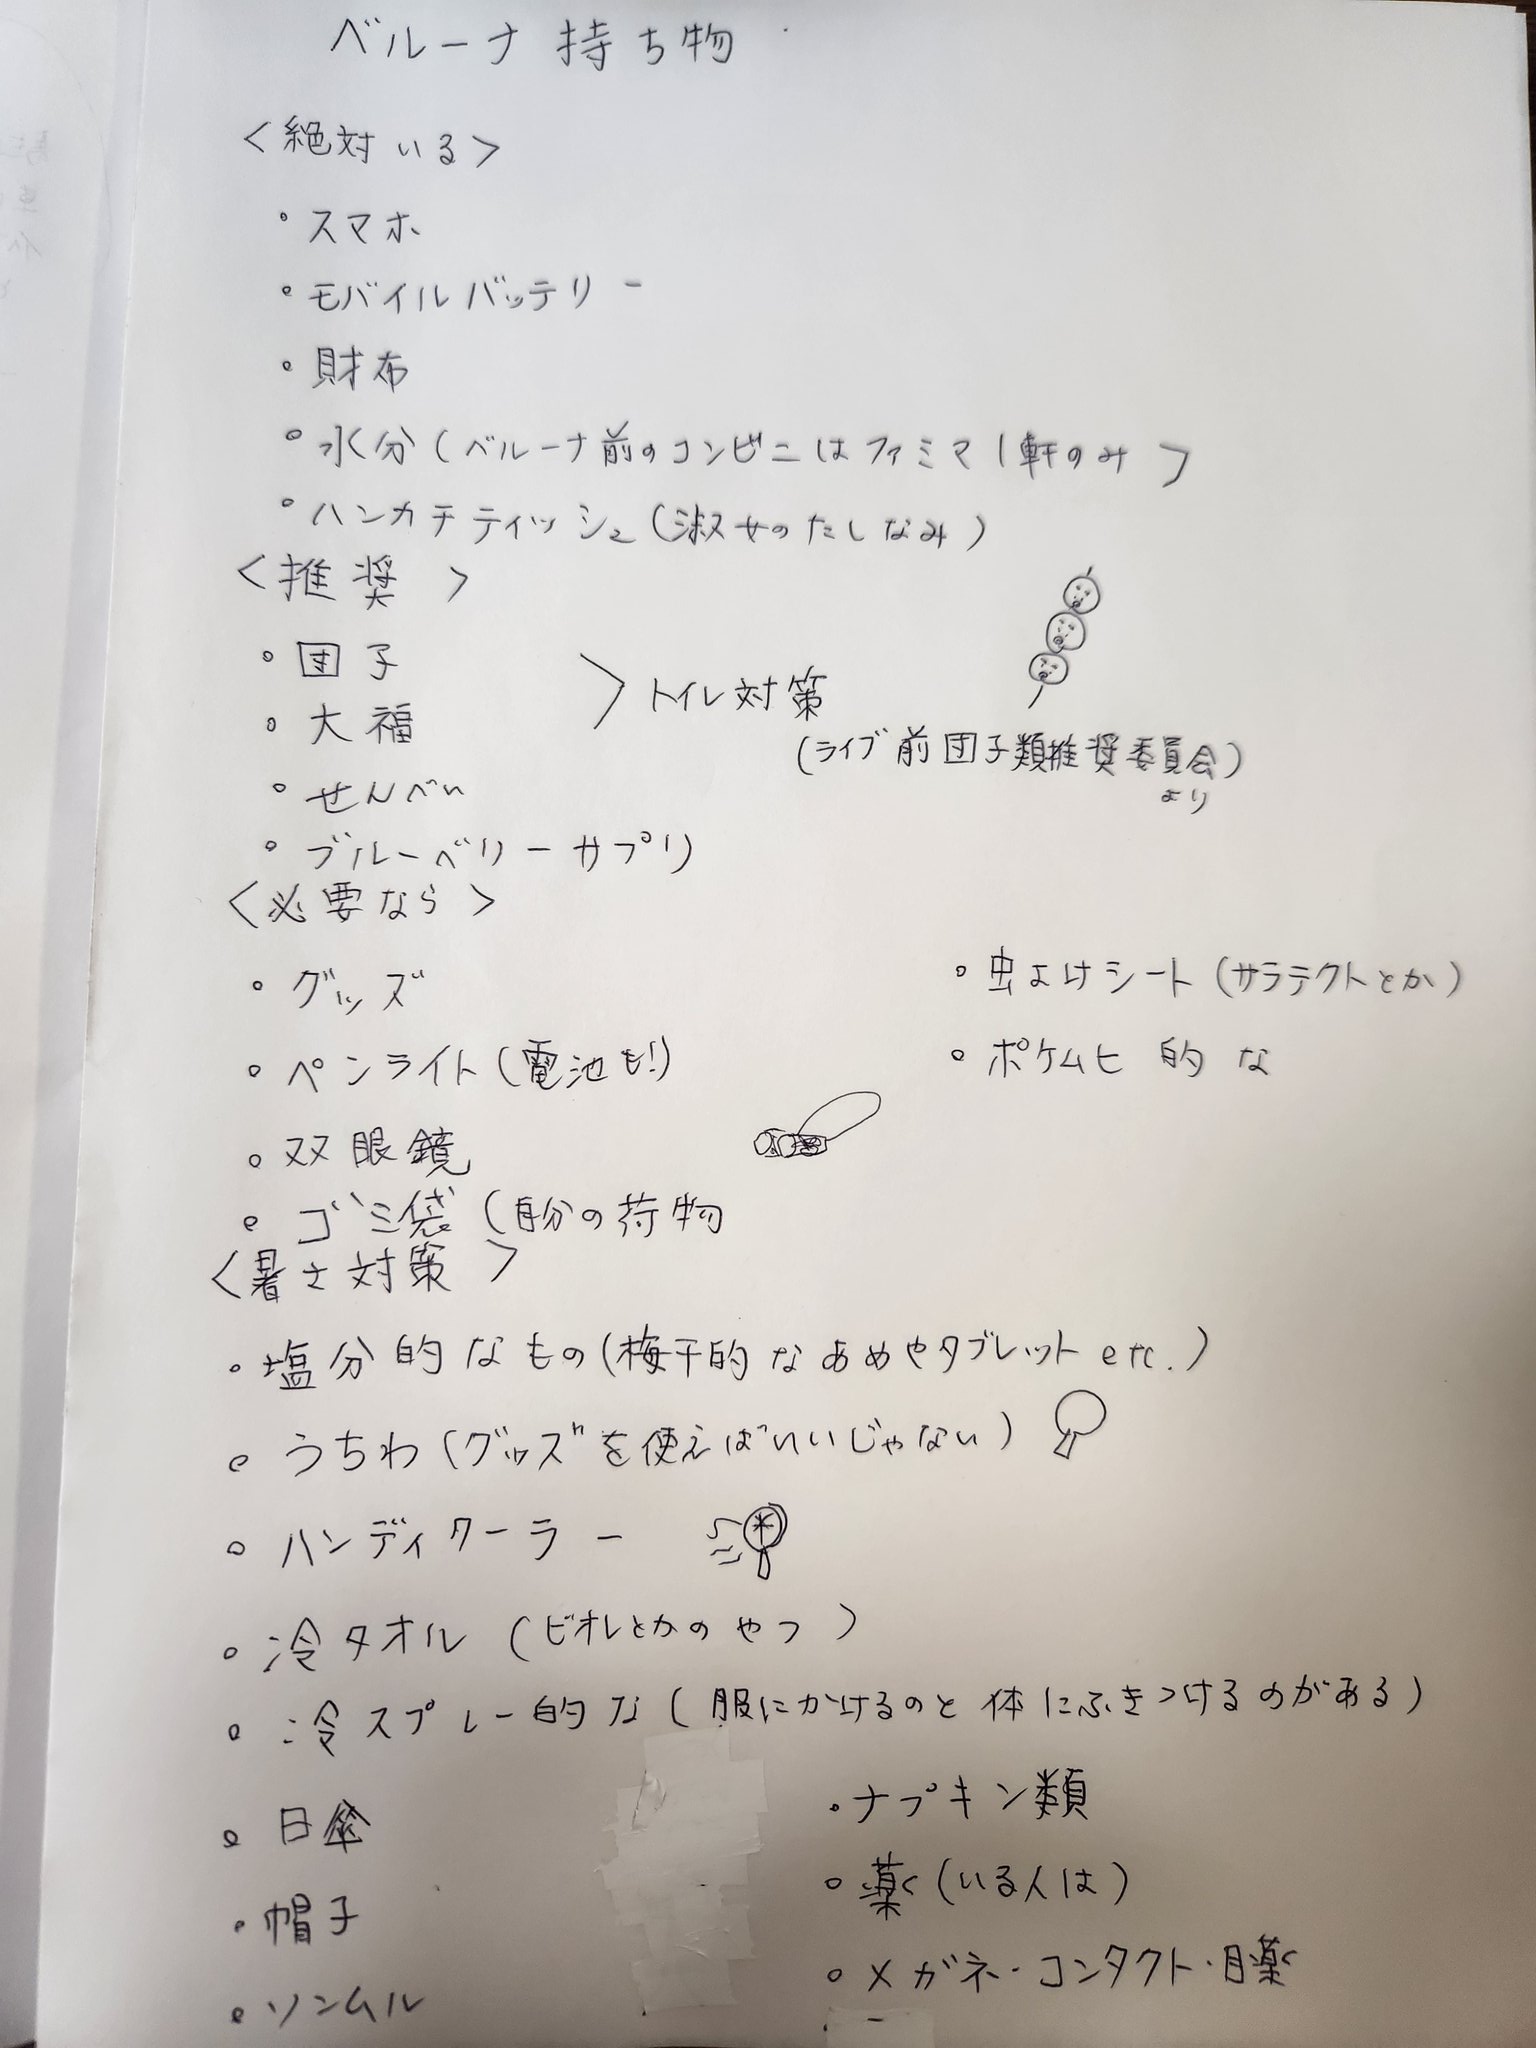 ベルーナ持ち物
<絶対いる>
・スマホ
・モバイルバッテリー
・財布
・水分(ベルーナ前のコンビニはファミマ1軒のみ)
・ハンカチティッシュ(淑女のたしなみ)
<推奨>
・団子
・大福
>トイレ対策
(ライブ前団子類推奨委員会)
より
・せんべい
・ブルーベリーサプリ
<必要なら>
・グッズ
・ペンライト(電池も!)
・双眼鏡
・ゴミ袋(自分の荷物
・虫よけシート(サラテクトとか)
・ポケムヒ的な
<暑さ対策>
・塩分的なもの(梅干的なあめやタブレットetc.)
・うちわ(グッズを使えばいいじゃない)
・ハンディクーラー
・冷タオル(ビオレとかのやつ)
・冷スプレー的な(服にかけるのと体にふきつけるのがある)
・日傘
・帽子
・ソンムル
・ナプキン類
・薬(いる人は)
・メガネ・コンタクト・目薬